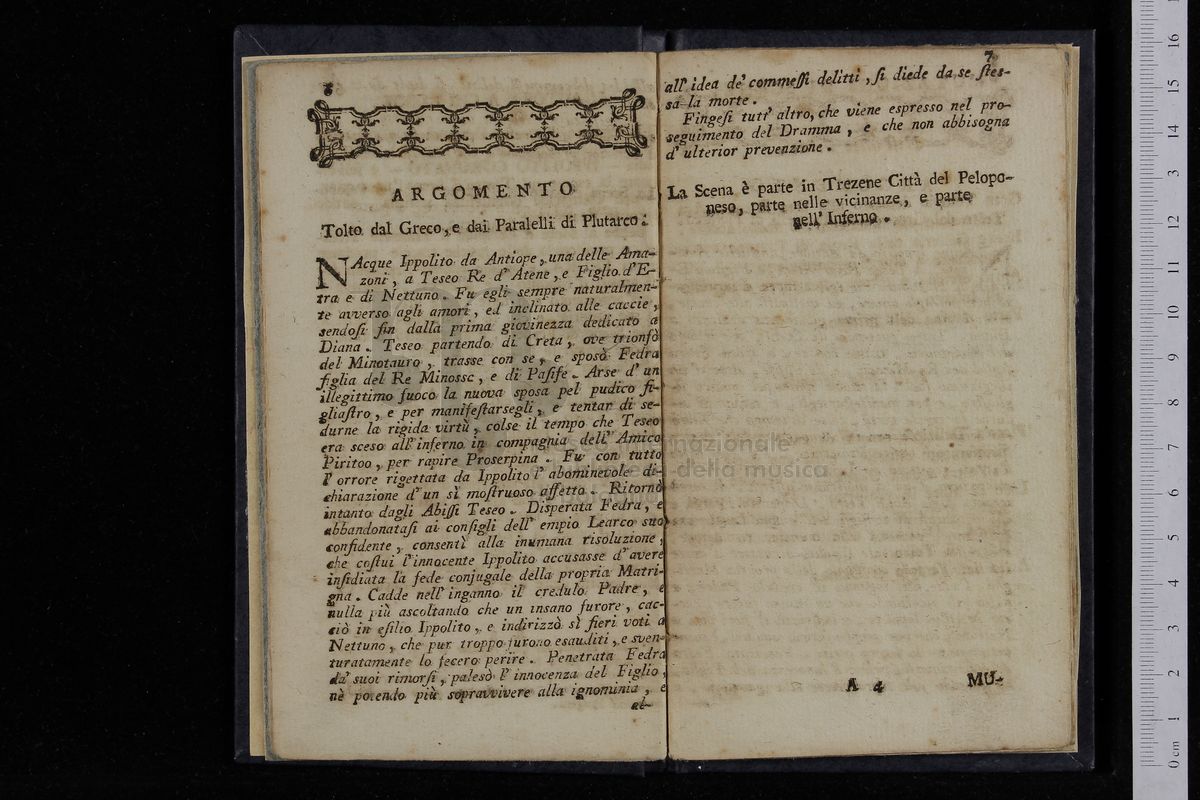 6
ARGOMENTO
Tolto dal Greco, e dai Paralelli di Plutarco.
NAcque Ippolito da Antiope, una delle Ama-
zoni, a Teseo Re d' Atene, e Figlio d' E-
tra e di Nettuno. Fu egli sempre naturalmen-
te avverso agli amori, ed inclinato alle caccie,
sendosi fin dalla prima giovinezza dedicato a
Diana. Teseo partendo di Creta, ove trionfò
del Minotauro, trasse con se, e sposò Fedra
figlia del Re Minosse, e di Pasife. Arse d' un
illegittimo fuoco la nuova sposa pel pudico fi-
gliastro, e per manifestarsegli, e tentar di se-
durne la rigida virtù, colse il tempo che Teseo
era sceso all' inferno in compagnia dell' Amico
Piritoo, per rapire Proserpina. Fu con tutto
l' orrore rigettata da Ippolito l' abominevole di-
chiarazione d' un sì mostruoso affetto. Ritornò
intanto dagli Abissi Teseo. Disperata Fedra, e
abbandonatasi ai consigli dell' empio Learco suo
confidente, consentì alla inumana risoluzione,
che costui l' innocente Ippolito accusasse d' avere
insidiata la fede conjugale della propria Matri-
gna. Cadde nell' inganno il credulo Padre, e
nulla più ascoltando che un insano furore, cac-
ciò in esilio Ippolito, e indirizzò sì fieri voti a
Nettuno, che pur troppo furono esauditi, e sven-
turatamente lo fecero perire. Penetrata Fedra
da' suoi rimorsi, palesò l' innocenza del Figlio,
nè potendo più sopravvivere alla ignominia, e
al-
7
all' idea de' commessi delitti, si diede da se stes-
sa la morte.
Fingesi tutt' altro, che viene espresso nel pro-
seguimento del Dramma, e che non abbisogna
d' ulterior prevenzione.
La Scena è parte in Trezene Città del Pelopo-
neso, parte nelle vicinanze, e parte
nell' Inferno.
A 4 MU-
nazionale
della musica